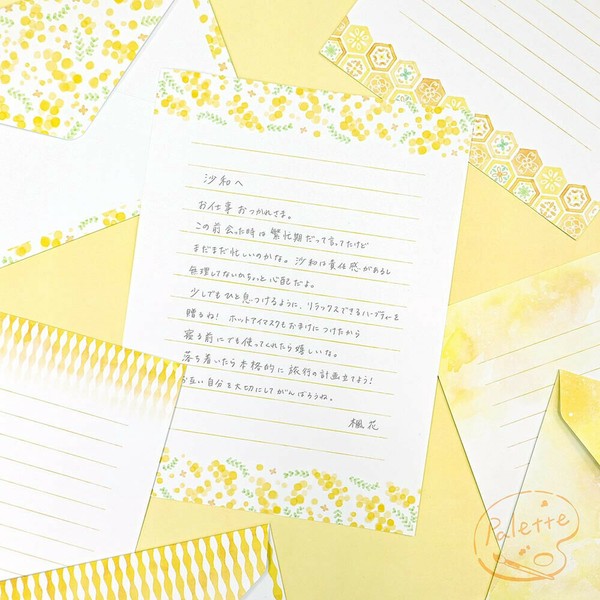 沙和へ
お仕事おつかれさま。
この前会った時は繁忙期だって言ってたけど
まだまだ忙しいのかな。沙和は責任感があるし
無理してないかちょっと心配だよ。
少しでもひと息つけるように、リラックスできるハーブティーを
贈るね!ホットアイマスクもおまけにつけたから
寝る前にでも使ってくれたら嬉しいな。
落ち着いたら本格的に旅行の計画立てよう!
お互い自分を大切にしてがんばろうね。
楓花
Palette